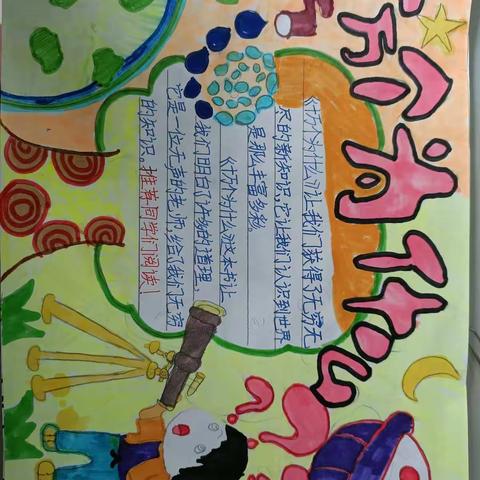 万个为什么
《十万个为什么》让我们获得了无穷无
尽的新知识,它让我们认识到世界
是那么丰富多彩。
《十万个为什么》这本书让
我们明白了许多的道理,
它是一位无声的老师,给我们无穷
的知识。推荐同学们阅读!